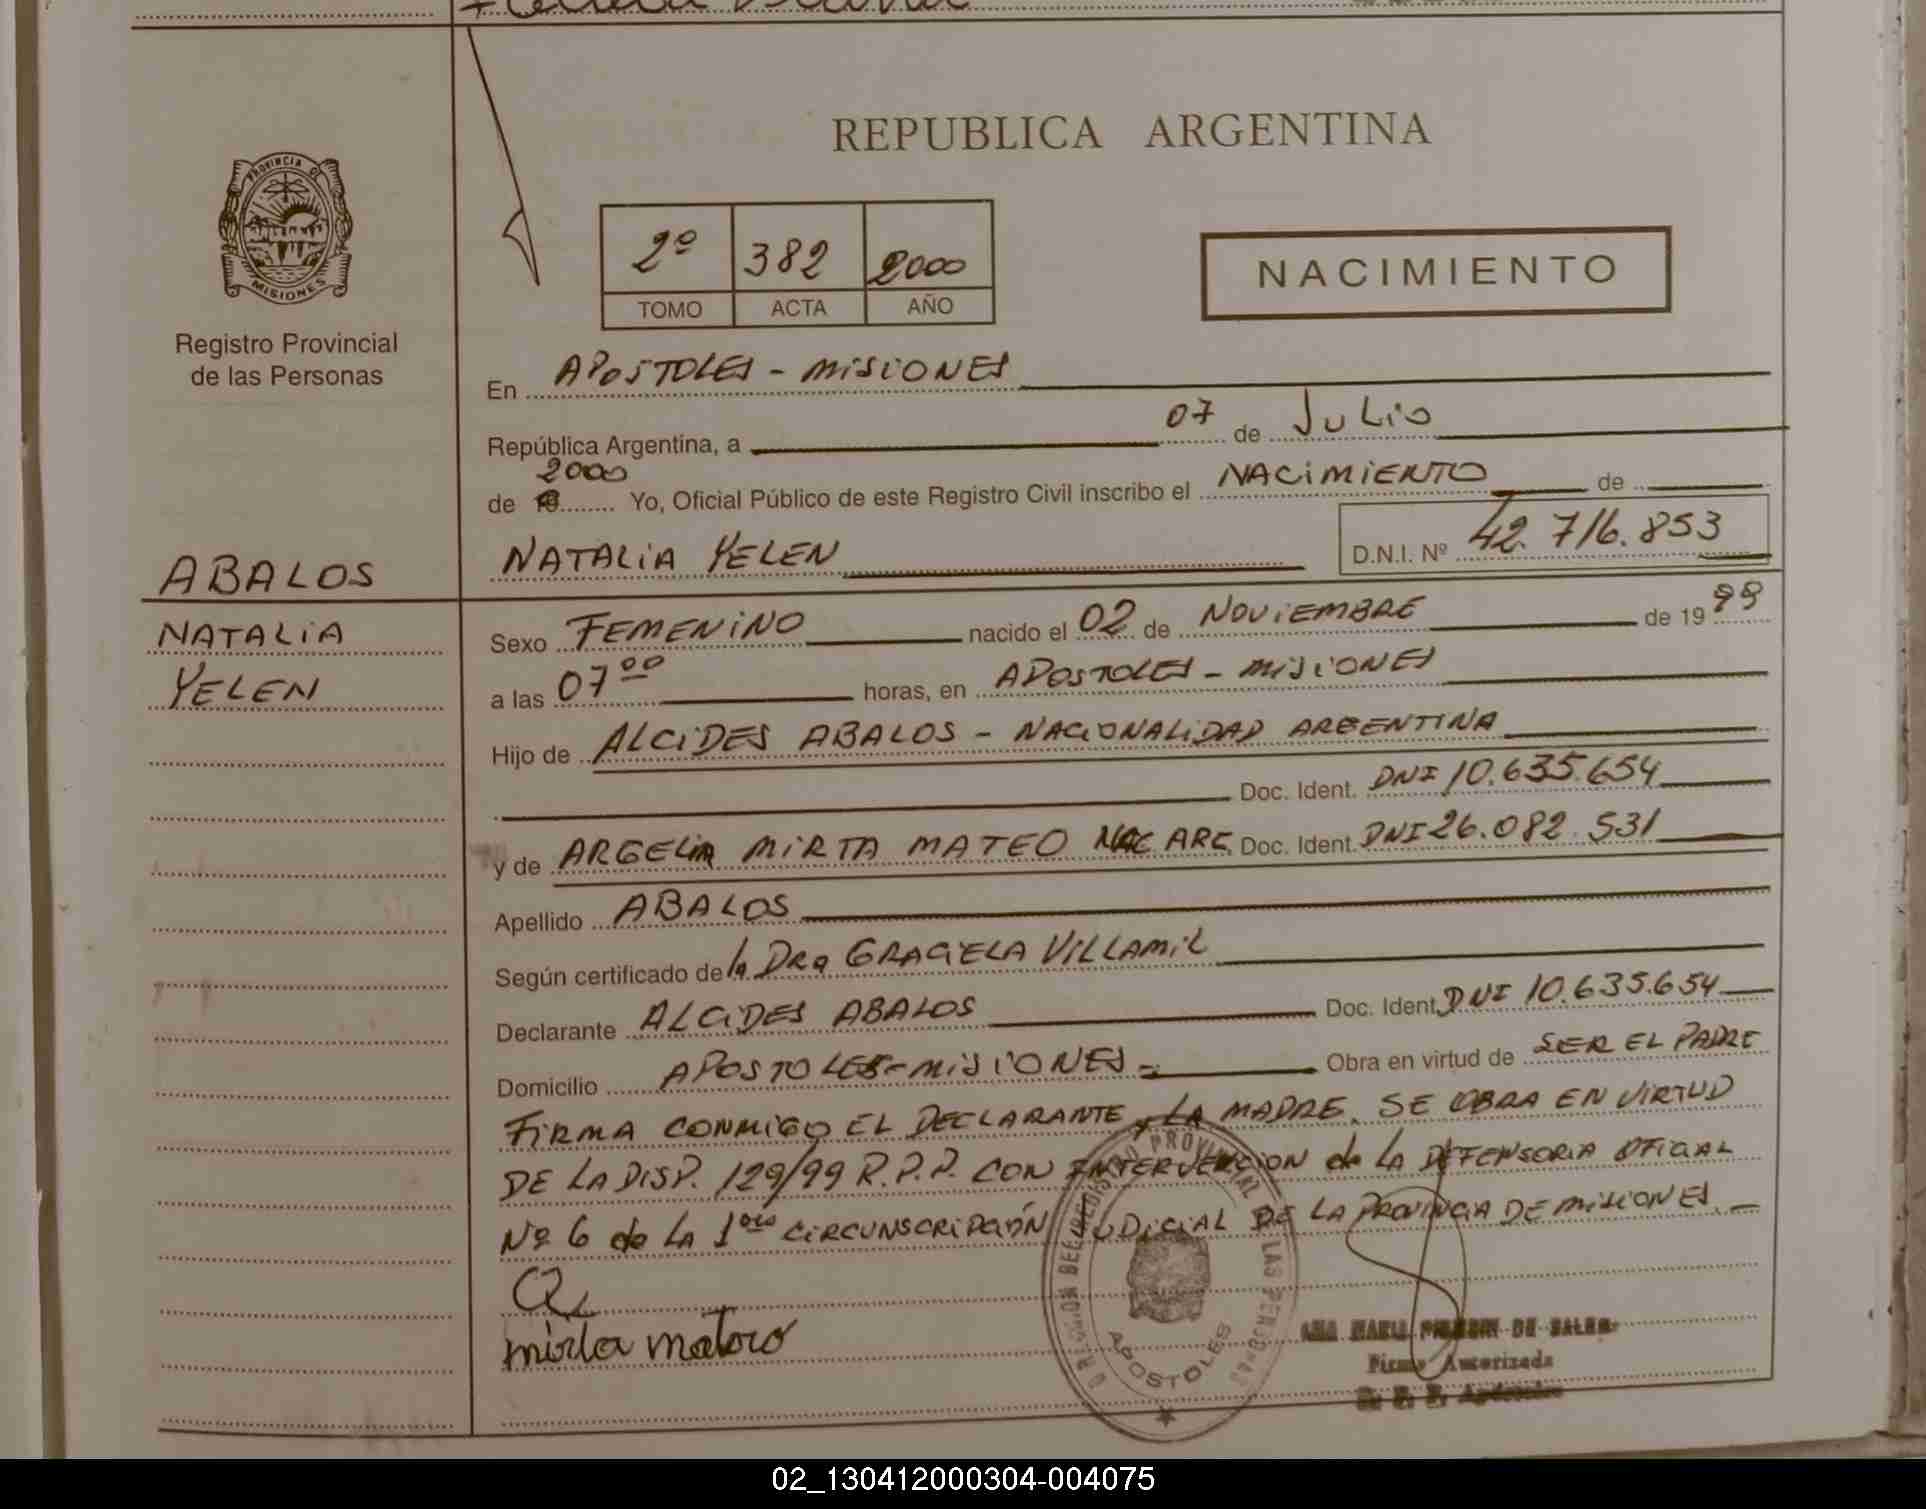 PROVINCIA DE
MISIONES
Registro Provincial
de las Personas
ABALOS
NATALIA
YELEN
REPUBLICA ARGENTINA
2º 382 2000
TOMO ACTA AÑO
NACIMIENTO
En APOSTOLES - MISIONES
República Argentina, a 07 de JULIO
de 2000 Yo, Oficial Público de este Registro Civil inscribo el NACIMIENTO de
NATALIA YELEN D.N.I. Nº 42.716.853
Sexo FEMENINO nacido el 02 de NOVIEMBRE de 19 99
a las 07 00 horas, en APOSTOLES - MISIONES
Hijo de ALCIDES ABALOS - NACIONALIDAD ARGENTINA
Doc. Ident. DNI 10.635.654
y de ARGELIA MIRTA MATEO NAC ARG Doc. Ident. DNI 26.082.531
Apellido ABALOS
Según certificado de la Dra GRACIELA VILLAMIL
Declarante ALCIDES ABALOS Doc. Ident. DNI 10.635.654
Domicilio APOSTOLES - MISIONES Obra en virtud de SER EL PADRE
FIRMA CONMIGO EL DECLARANTE y LA MADRE. SE OBRA EN VIRTUD
DE LA DISP. 129/99 R.P.P. CON INTERVENCION de LA DEFENSORIA OFICIAL
Nº 6 de LA 1era CIRCUNSCRIPCIÓN JUDICIAL DE LA PROVINCIA DE MISIONES.-
mirta mateo
APOSTOLES
Firma Autorizada
02_130412000304-004075